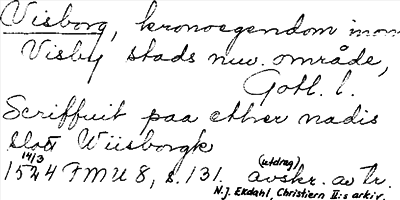 Visborg, kronoegendom inom
Visby stads nuv. område,
Gotl. l.
Scriffuit paa ether nadis
slott Wiisborgk
14/3
1524 FMU 8, s. 131. (utdrag) avskr. av tr.
N.J. Ekdahl, Christiern II:s arkiv.